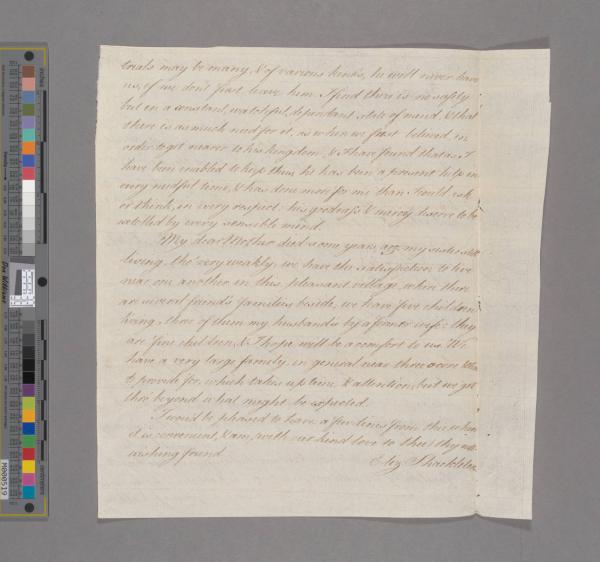 trials may be many & of various kinds, he will never leave
us, if we don't first leave him. I find there is no safety
but in a constant, watchful, dependant state of mind, & that
there is as much need for it, as when we first believed, in
order to get nearer to his kingdom, & I have found that as I
have been enabled to keep thus, he has been a present help in
every needful time, & has done more for me than I could ask
or think, in every respect: his goodness & mercy deserve to be
extolled by every sensible mind.
My dear Mother died some years ago, my sister still
living, tho' very weakly, we have the satisfaction to live
near one another in this pleasant village, where there
are several friends families beside, we have five children
living, three of them my husband's by a former wife: they
are fine children, & I hope will be a comfort to us. We
have a very large family, in general near three score
to provide for, which takes up time & attention, but we get
thro' beyond what might be expected.
I would be pleased to have a few lines from thee when
it is convenient, & am, with our kind love to thee, thy well
wishing friend
Eliz Shackleton
M000519